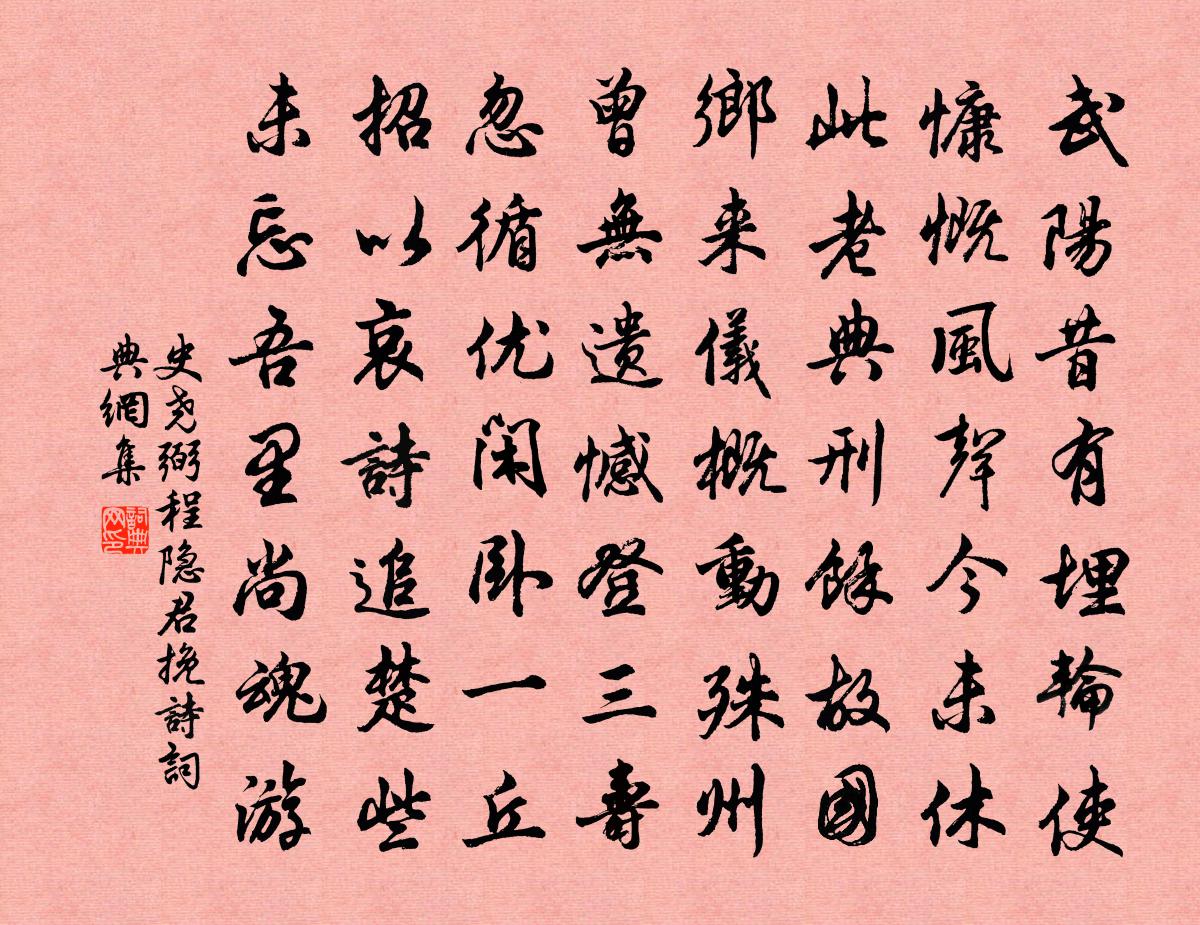 武陽昔有埋輪使
慷慨風聲今未休
此老典刑餘故國
鄉来儀概動殊州
曾無遺憾登三壽
忽循优閑卧一丘
招以哀詩追楚些
未忘吾里尚魂游
史尧弼程隐君挽詩詞
典網集
詞典
网印